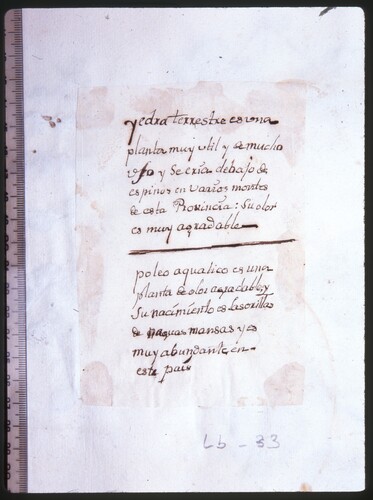 yedra terrestre es una
planta muy util y de mucho
uso y se cria debajo de
espinos en varios montes
de esta Provincia: Su olor
es muy agradable
poleo aqualico es una
planta de olor agradable, y
Su nacimiento es las orillas
de aguas mansas y es
muy abundante en
este pais
Lb - 33